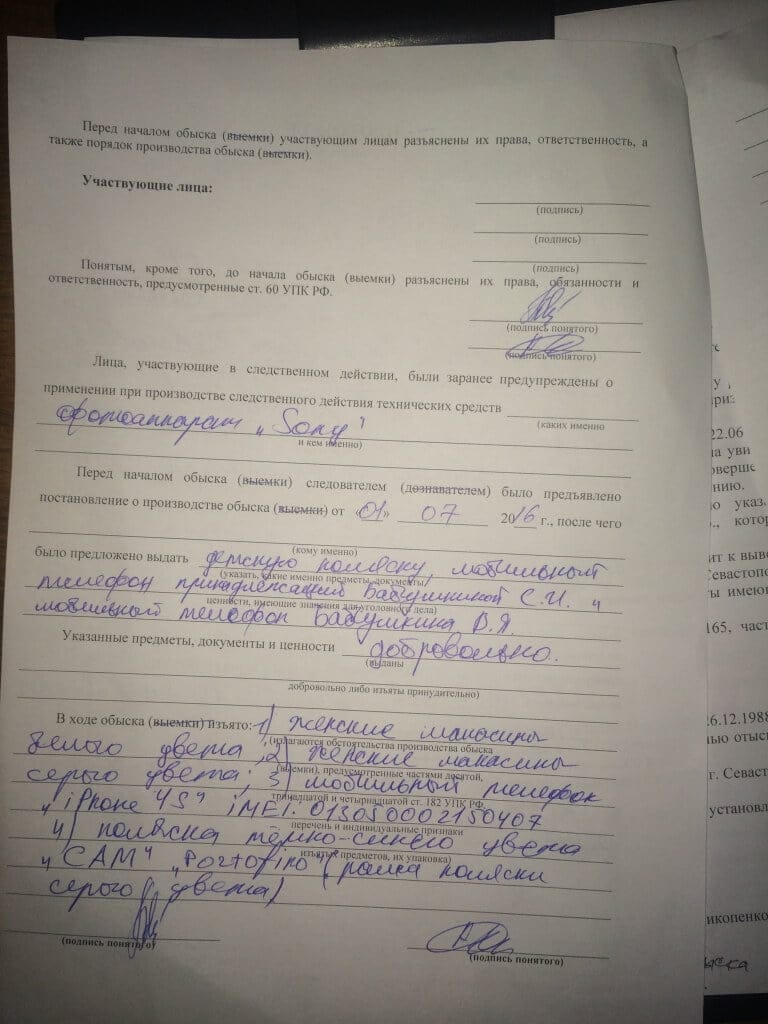 Перед началом обыска (выемки) участвующим лицам разъяснены их права, ответственность, а
также порядок производства обыска (выемки).
Участвующие лица:
(подпись)
(подпись)
(подпись)
Понятым, кроме того, до начала обыска (выемки) разъяснены их права, обязанности и
ответственность, предусмотренные ст. 60 УПК РФ.
(подпись понятого)
(подпись понятого)
Лица, участвующие в следственном действии, были заранее предупреждены о
применении при производстве следственного действия технических средств
(каких именно
фотоаппарат „Sony"
и кем именно)
Перед началом обыска (выемки) следователем (дознавателем) было предъявлено
постановление о производстве обыска (выемки) от «01» 07 2016 г., после чего
(кому именно)
было предложено выдать детскую коляску, мобильный
(указать, какие именно предметы, документы,
телефон принадлежащий Бабушкиной С.И. и
ценности, имеющие значения для уголовного дела)
мобильный телефон Бабушкина В.Я.
Указанные предметы, документы и ценности добровольно.
(выданы
добровольно либо изъяты принудительно)
В ходе обыска (выемки) изъято: 1) женские макасины
(излагаются обстоятельства производства обыска
белого цвета; 2) женские макасины
(выемки), предусмотренные частями десятой,
серого цвета; 3) мобильный телефон
тринадцатой и четырнадцатой ст. 182 УПК РФ,
„iPhone 4S" iMEI: 013050002150407
перечень и индивидуальные признаки
4) коляска тёмко-синего цвета
изъятых предметов, их упаковка)
„CAM" „Portofino" (рамка коляски
серого цвета)
(подпись понятого)
(подпись понятого)
22.06
ла уви
нию.
о указ.
., котор
ит к выво
Севастопо
ты имею
165, част
26.12.1988
ью отыс
г. Севаст
установл
икопенко